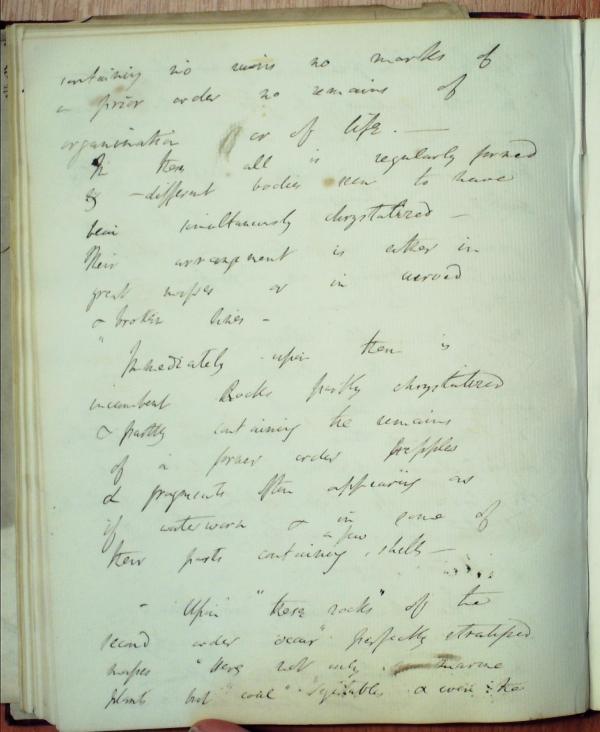 containing no ruins no marks of
a prior order no remains of
organisation or of life. —
In these all is regularly formed
different bodies seem to have
been simultaneously chrystalized —
their arrangement is either in
great masses or in curved
& broken lines —
" Immediately upon them is
incumbent Rocks partly chrystalized
& partly containing the remains
of a former order pebbles
& fragments often appearing as
if water worn & in some of
their parts containing a few shells —
- Upon "these rocks" of the
second order occur" perfectly stratified
masses "Here not only marine
plants but "coal" vegetables & even the